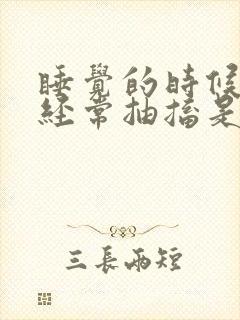 睡覺的時候
經常抽搐是
三長兩短